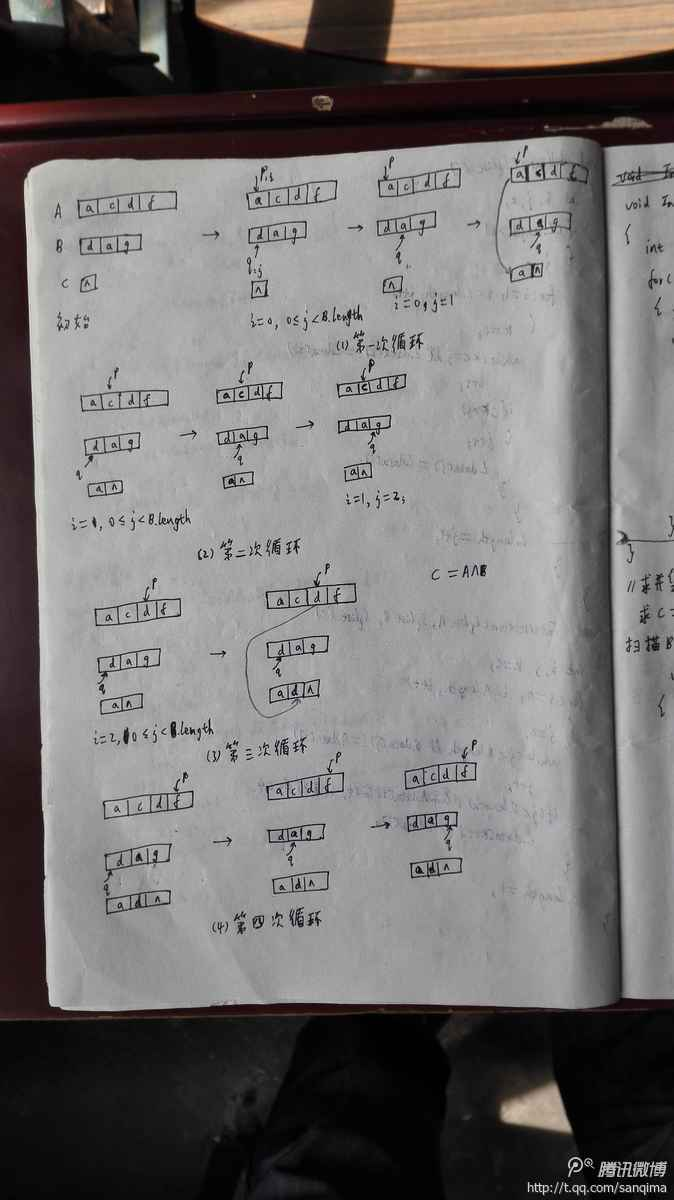 P,i
P
P
A a c d f
a c d f
a c d f
a c d f
B d a g → d a g → d a g → d a g
q,j
q
q
C ∧
∧
∧
a ∧
初始
i=0, 0≤j<B.length
i=0, j=1
(1) 第一次循环
P
P
P
a c d f
a c d f
a c d f
d a g → d a g → d a g
q
q
q
a ∧
a ∧
a ∧
i=1, 0≤j<B.length
i=1, j=2;
(2) 第二次循环
C=A∩B
P
P
a c d f
a c d f
d a g → d a g
q
q
a ∧
a d ∧
i=2, 0≤j<B.length
(3) 第三次循环
P
P
P
a c d f
a c d f
a c d f
d a g → d a g → d a g
q
q
q
a d ∧
a d ∧
a d ∧
(4) 第四次循环
void In
{
int
for(
{
}
//求并
求C=
扫描B
{
腾讯微博
http://t.qq.com/sanqima